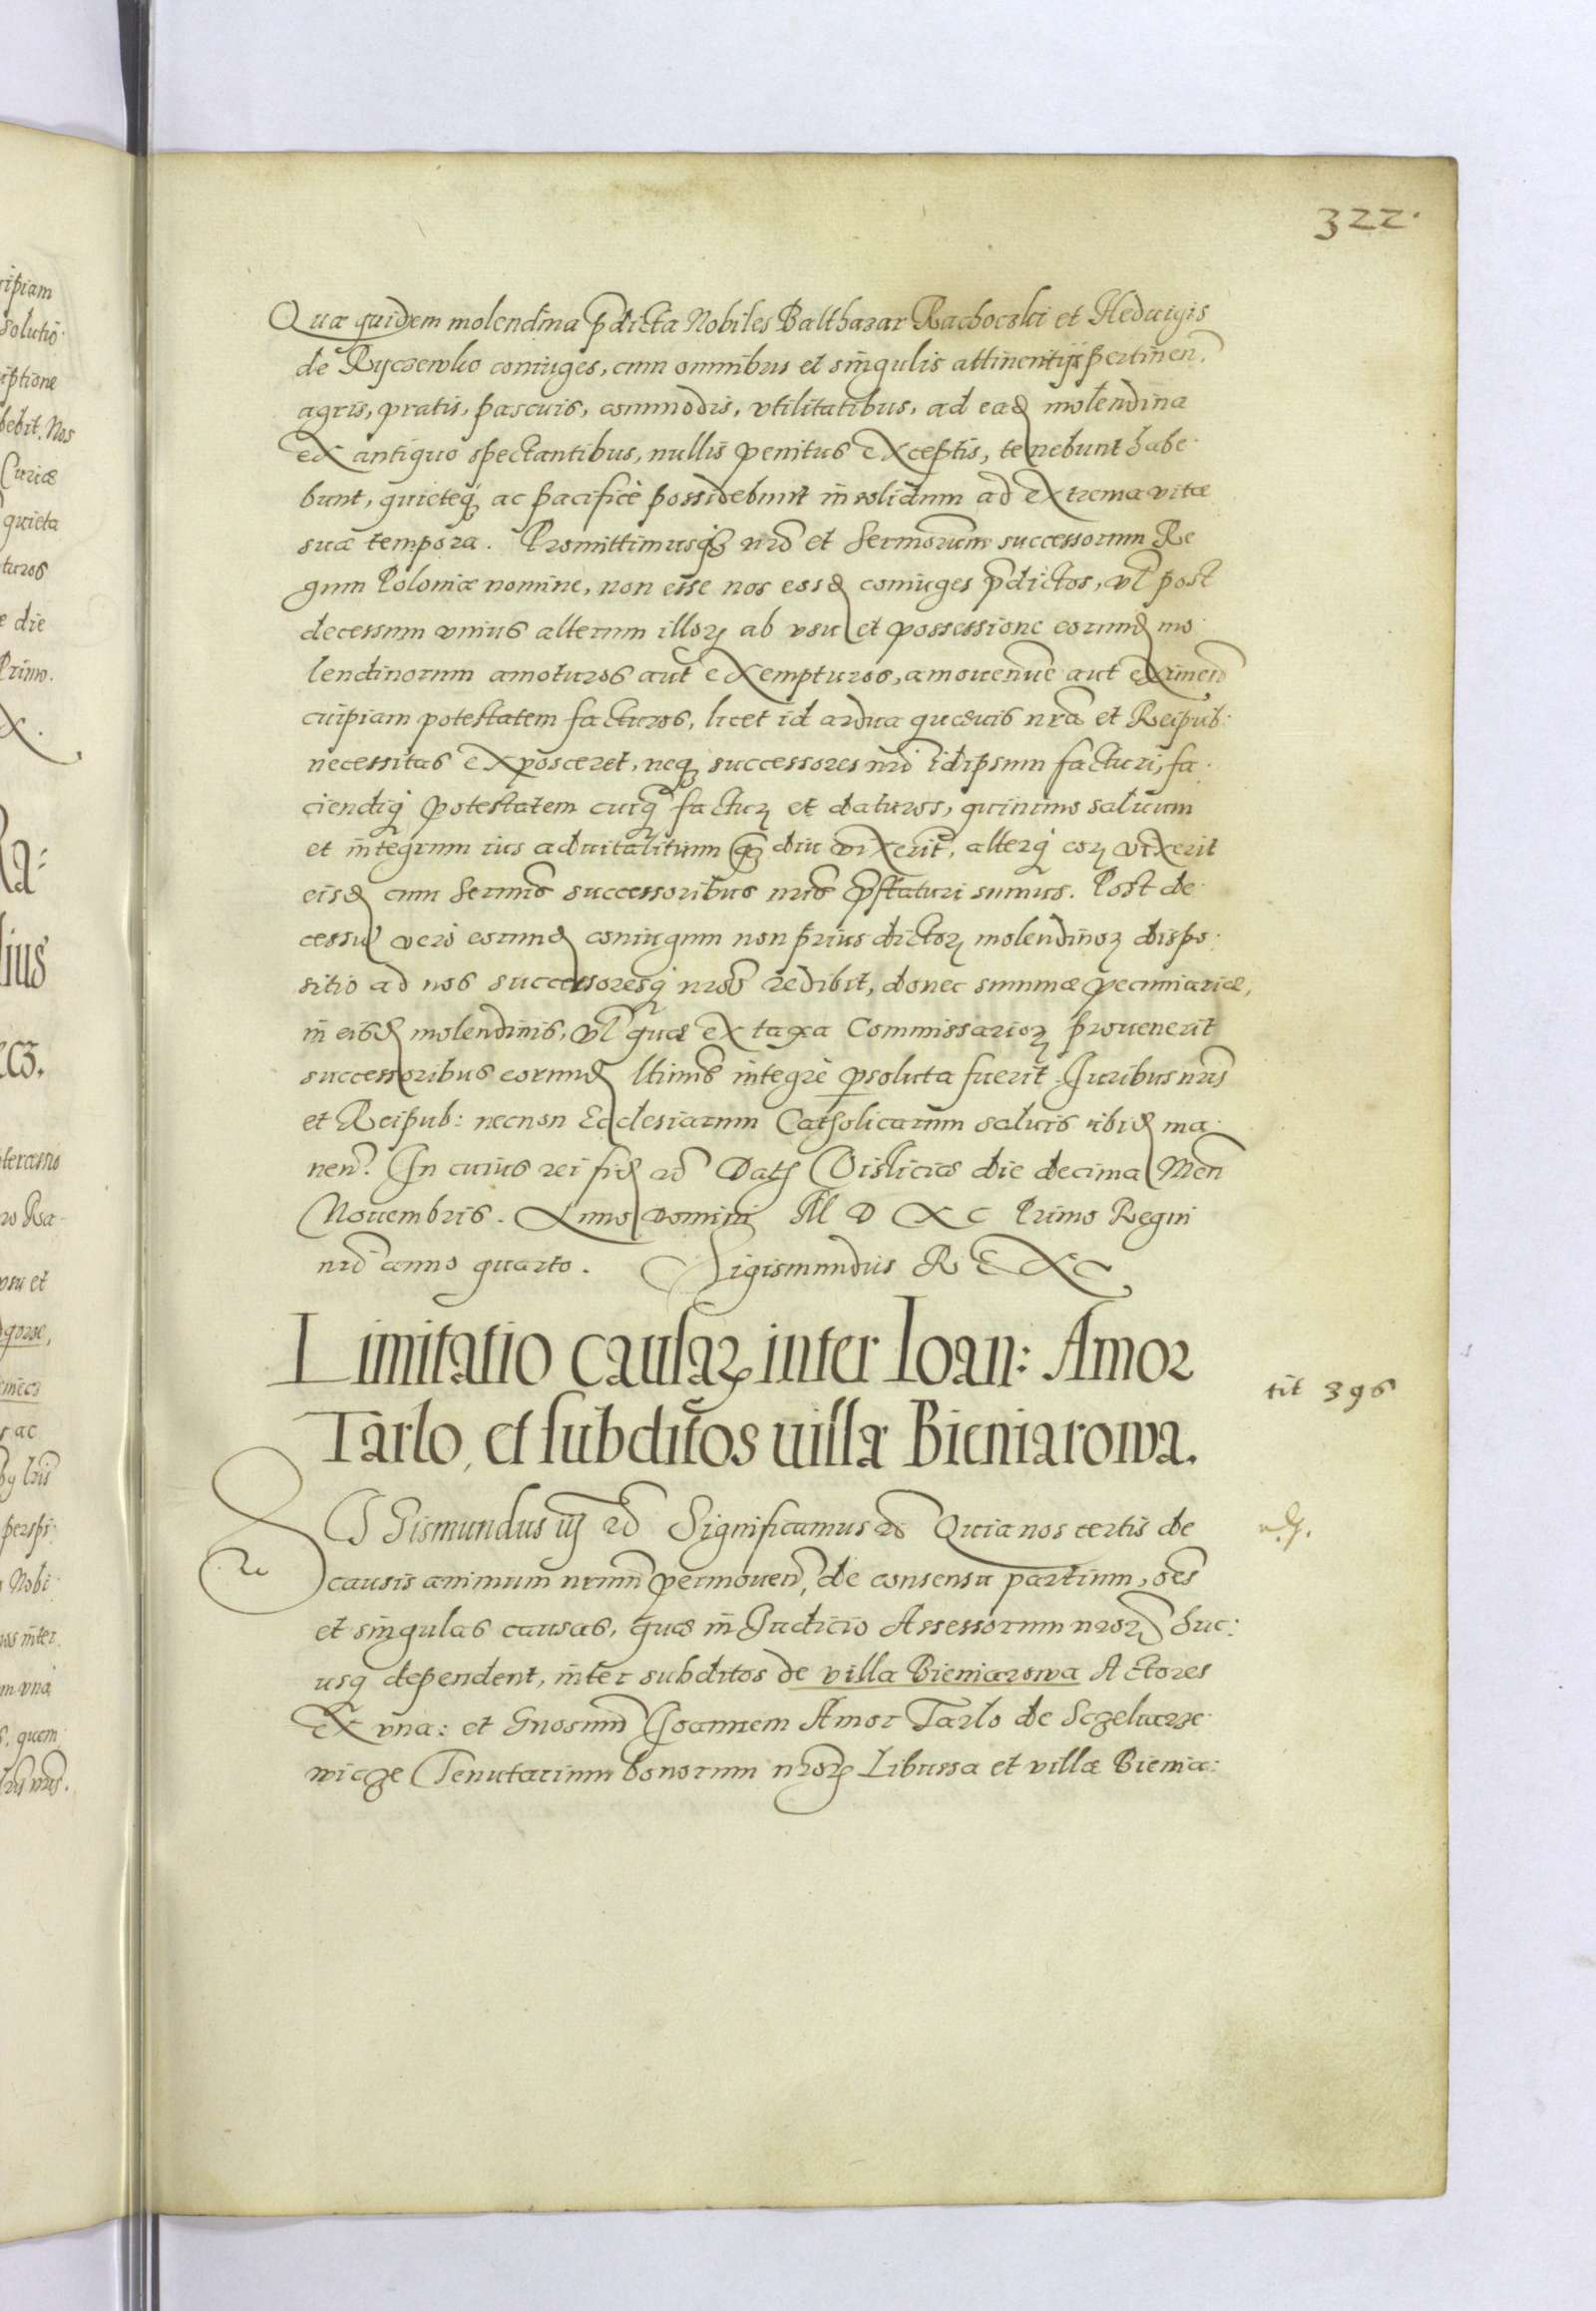 322.
Quæ quidem molendina p̄dicta Nobiles Balthazar Rachoczki et Heduigis
de Ryczewko coniuges, cum omnibus et singulis attinentijs pertinen̄.
agris, pratis, pascuis, commodis, vtilitatibus, ad eaꝺ molendina
ex antiquo spectantibus, nullis penitus exceptis, tenebunt habe
bunt, quieteq; ac pacificè possidebunt in solidum ad extrema vitæ
suæ tempora. Promittimusq; nr̄o et Sermorum successorum Re
gum Poloniæ nomine, non esse nos eosꝺ coniuges p̄dictos, vl̄ post
decessum vnius alterum illoꝝ ab vsu et possessione eorumꝺ mo
lendinorum amoturos aut exempturos, amouenďue aut eximenď
cuipiam potestatem facturos, licet id ardua quæuis nr̄a et Reipub:
necessitas exposceret, neq; successores nr̄i idipsum facturi, fa
ciendiq; potestatem cuiq̄ factur; et daturos, quinimo saluum
et integrum ius aduitalitium q̄ diu vixerit, alterq; eoꝝ vixerit
eisꝺ cum Sermis successoribus nr̄is p̄staturi sumus. Post de
cessū vero eorumꝺ coniugum non prius dictoꝝ molendinoꝝ dispo
sitio ad nos successoresq; nr̄os redibit, donec summæ pecuniariæ,
in eisꝺ molendinis, vl̄ quæ ex taxa Commissarioꝝ prouenerit
successoribus eorumꝺ ltimis integrè psoluta fuerit. Juribus nr̄is
et Reipub: necnon Ecclesiarum Catholicarum saluis ibiꝺ ma
nen̄. In cuius rei fiꝺ rč Datꝭ Visliciæ die decima Men̄
Nouembris. Anno Domini M D XC Primo Regni
nr̄i anno quarto. Sigismundus REX
Limitatio causaꝝ inter Ioan: Amor
Tarlo, et subditos uillæ Bieniarowa.
tit 396
SIGismundus iij rč Significamus rč Quia nos certis de
causis animum nrum̄ permouen̄, de consensu partium, oēs
et singulas causas, quæ in Judicio Assessorum nroꝝ huc:
usq; dependent, inter subditos de villa Bieniarowa Actores
Ex vna: et Gnosum̄ Joannem Amor Tarlo de Sczekarze
wicze Tenutarium bonorum nroꝝ Libussa et villæ Bienia: